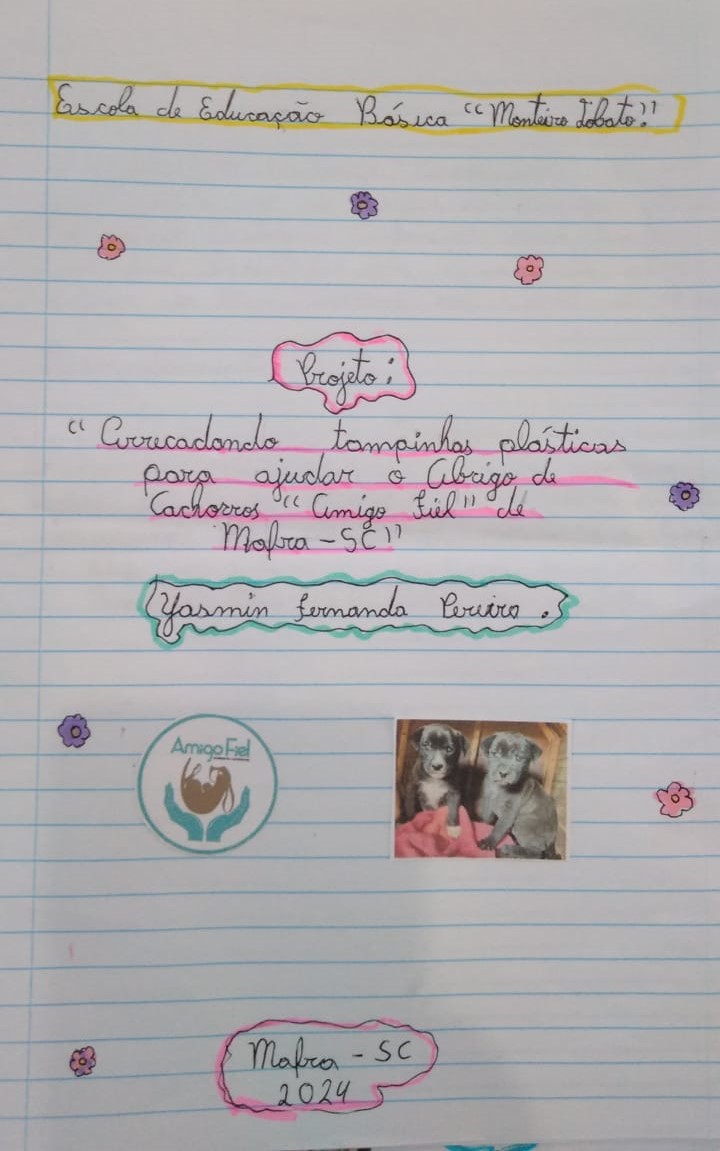 Escola de Educação Básica "Monteiro Lobato."
Projeto:
"Arrecadando tampinhas plásticas
para ajudar o Abrigo de
Cachorros "Amigo Fiel" de
Mafra - SC"
Yasmin Fernanda Pereira.
Amigo Fiel
Mafra - SC
2024